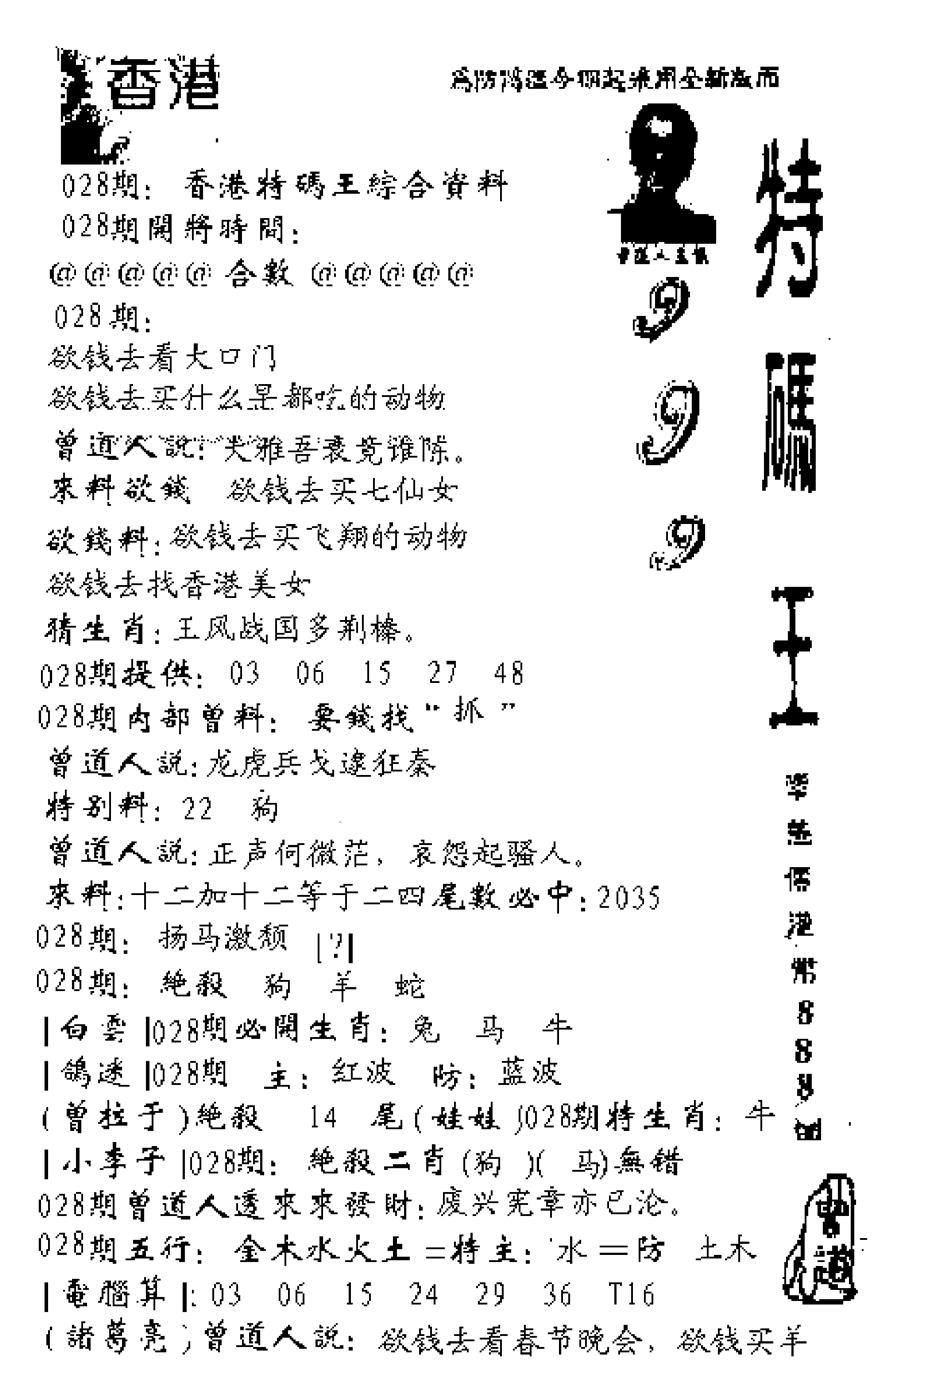 香港
為防濫今期起采用全新版面
028期: 香港特碼王綜合資料
028期開將時間:
@@@@@合數@@@@@
028期:
欲钱去看大口门
欲钱去买什么是都吃的动物
曾道人説:大雅吾衰竞谁陈。
來料欲錢 欲钱去买七仙女
欲錢料:欲钱去买飞翔的动物
欲钱去找香港美女
猜生肖:王风战国多荆榛。
028期提供: 03 06 15 27 48
028期内部曾料: 要錢找“抓”
曾道人説:龙虎兵戈逮狂秦
特别料: 22 狗
曾道人説:正声何微茫，哀怨起骚人。
來料:十二加十二等于二四尾數必中:2035
028期: 扬马激颓 |?|
028期: 絶殺 狗 羊 蛇
|白雲|028期必開生肖: 兔 马 牛
|鴿迷|028期 主: 红波 防: 蓝波
(曾拉于)絶殺 14 尾(娃娃)028期特生肖: 牛
|小李子|028期: 絶殺二肖(狗 )( 马)無错
028期曾道人透來來發財:废兴宪章亦已沦。
028期五行: 金木水火土=特主: 水=防 土木
|電腦算|: 03 06 15 24 29 36 T16
(諸葛亮)曾道人説: 欲钱去看春节晚会，欲钱买羊
999
特碼王
港幣888
曾道